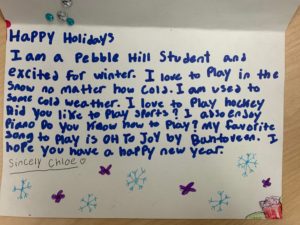 Happy Holidays
I am a Pebble Hill Student and
excited for winter. I love to Play in the
Snow no matter how cold. I am used to
some cold weather. I love to Play hockey
Did you like to Play Sports? I also enjoy
Piano Do you Know how to Play? My favorite
Song to Play is OH To Joy by Bahtoveen. I
hope you have a happy new year.
Sincely Chloe